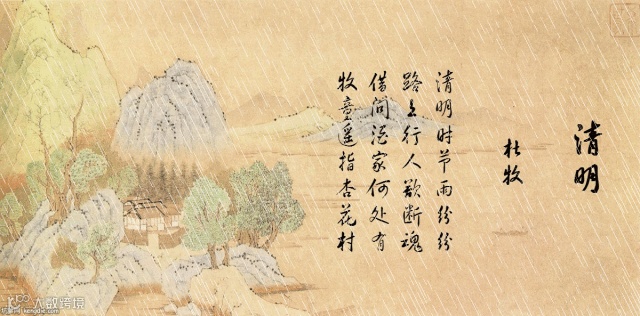 清明
杜牧
清明时节雨纷纷
路上行人欲断魂
借问酒家何处有
牧童遥指杏花村
大数跨境